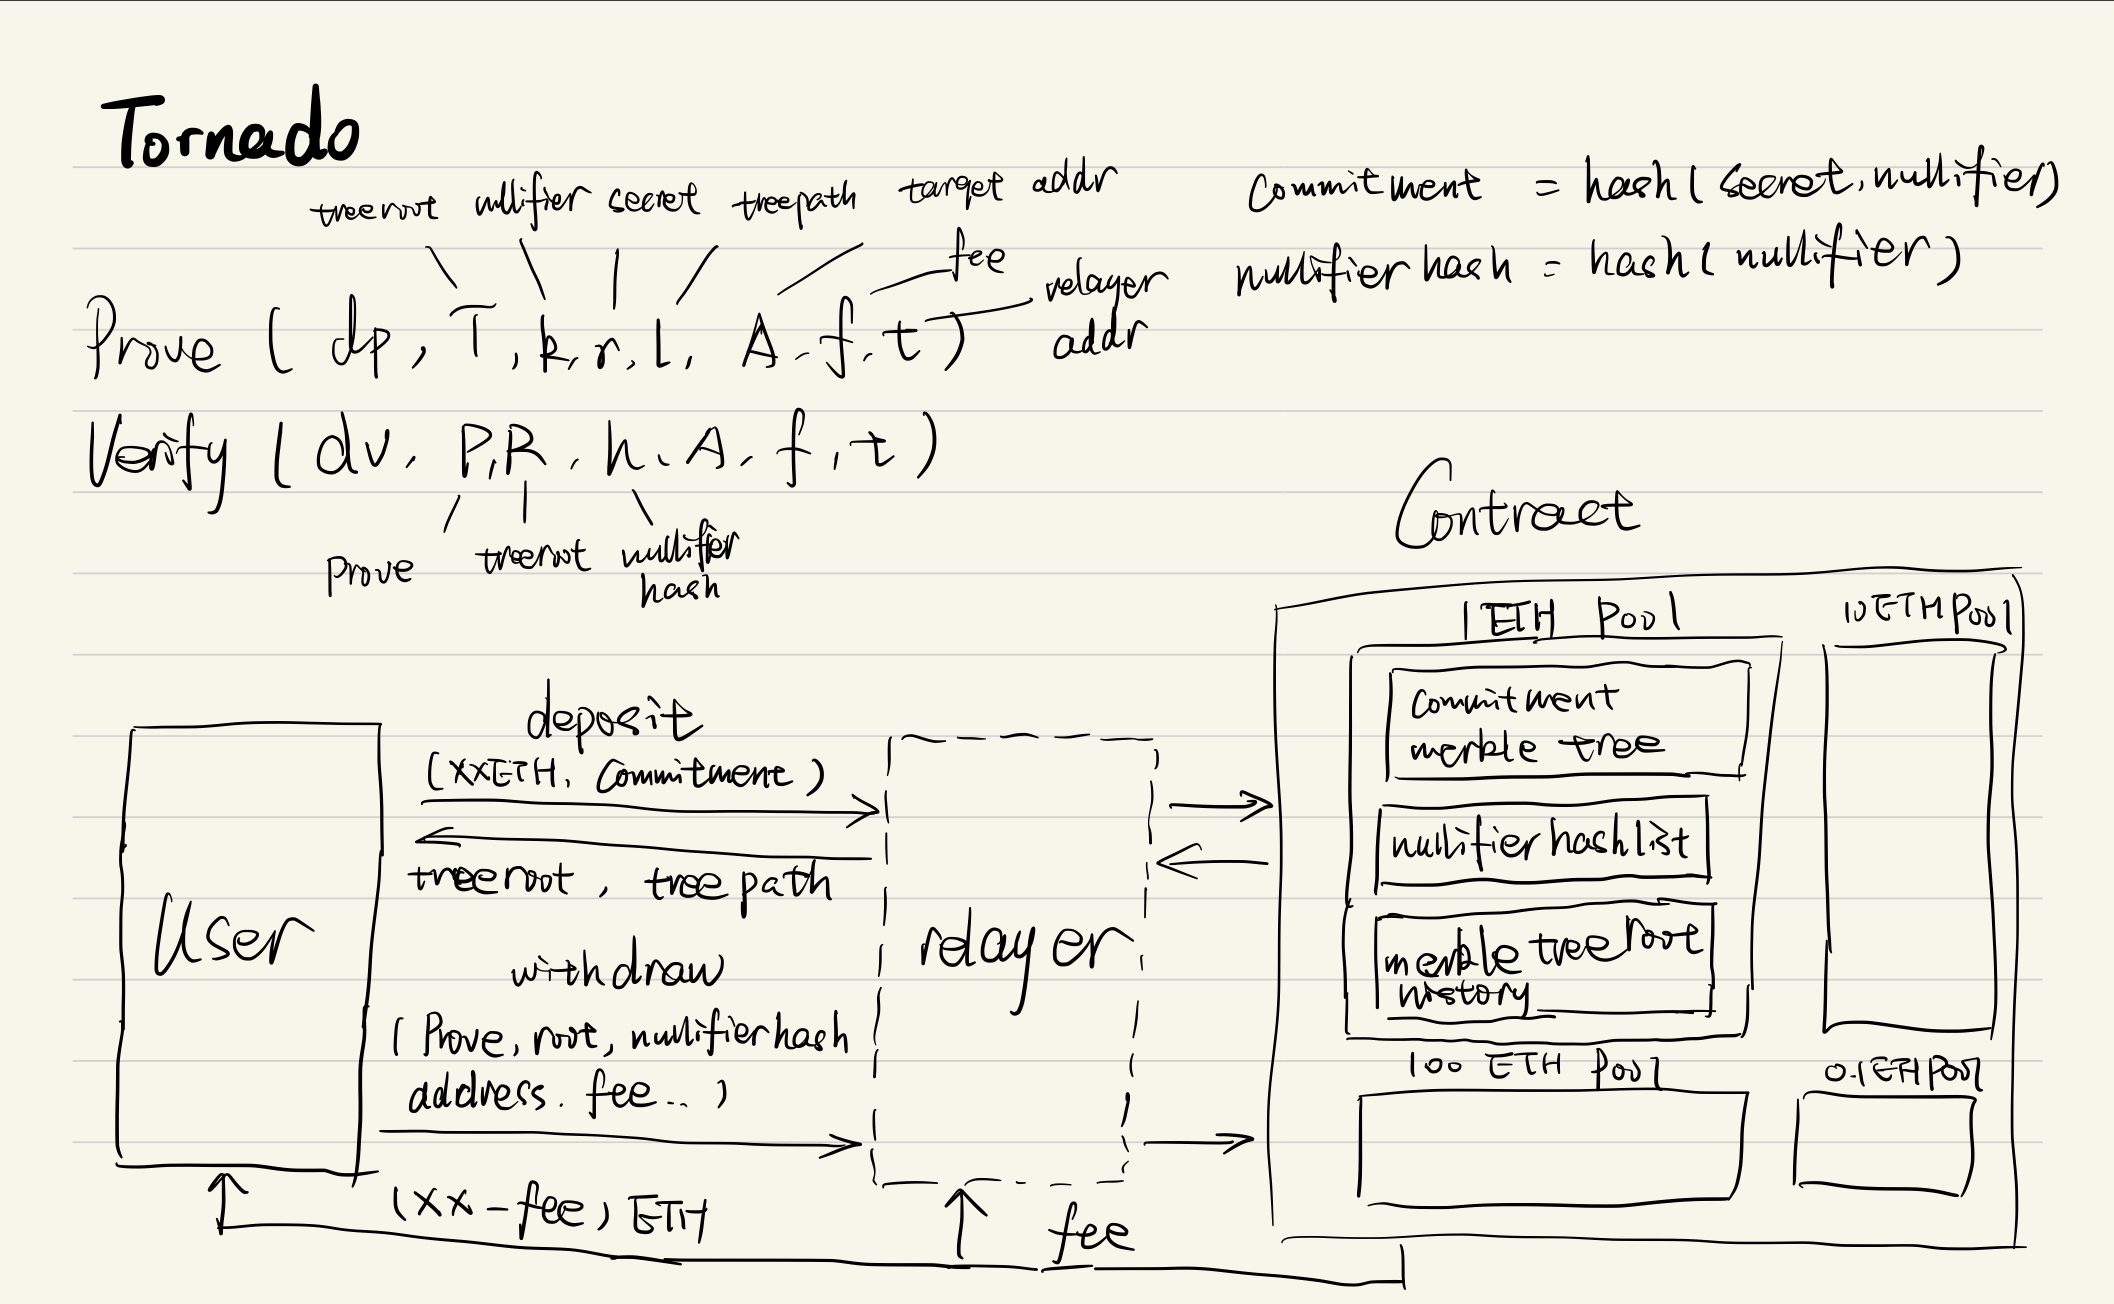 Tornado
treeroot nullifier secret treepath target addr
fee
relayer
addr
Prove ( dp, T, k, r, l, A, f, t )
commitment = hash( secret, nullifier)
nullifier hash = hash( nullifier )
Verify ( dv, P, R, h, A, f, t )
Prove treeroot nullifier
hash
Contract
1 ETH Pool
10 ETH Pool
Commitment
merble tree
nullifier hash list
merble tree root
history
100 ETH Pool
0.1 ETH Pool
deposit
(XXETH, Commitment)
treeroot, tree path
User
relayer
withdraw
( Prove, root, nullifier hash
address, fee.. )
(XX - fee) ETH
fee